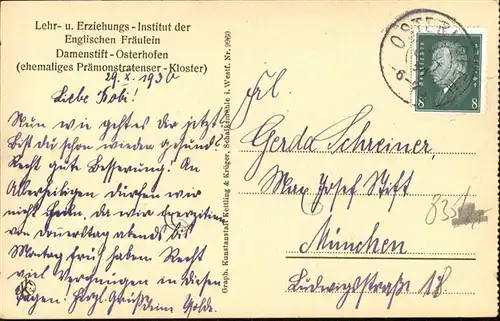 Lehr- u. Erziehungs-Institut der
Englischen Fräulein
Damenstift-Osterhofen
(ehemaliges Prämonstratenser-Kloster)
29. X. 1930
Liebe
Nun wie geht es dir jetzt?
Bist du schon wieder gesund?
Recht gute Besserung! An
Allerheiligen dürfen wir
nicht heim, da wir Exerzitien
von Donnerstag abends bis
Montag früh haben. Recht
viel Vergnügen in diesen
Tagen! Herzl. Grüße deine
Graph. Kunstanstalt Kettling & Krüger, Schalksmühle i. Westf. Nr. 9960
Frl.
Gerda Schreiner,
Max Josef Stift
München
Ludwigstraße 18
8 8